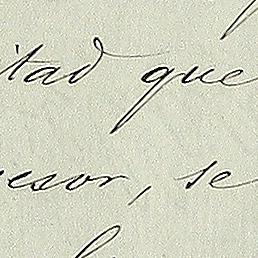 itad que
esor, se